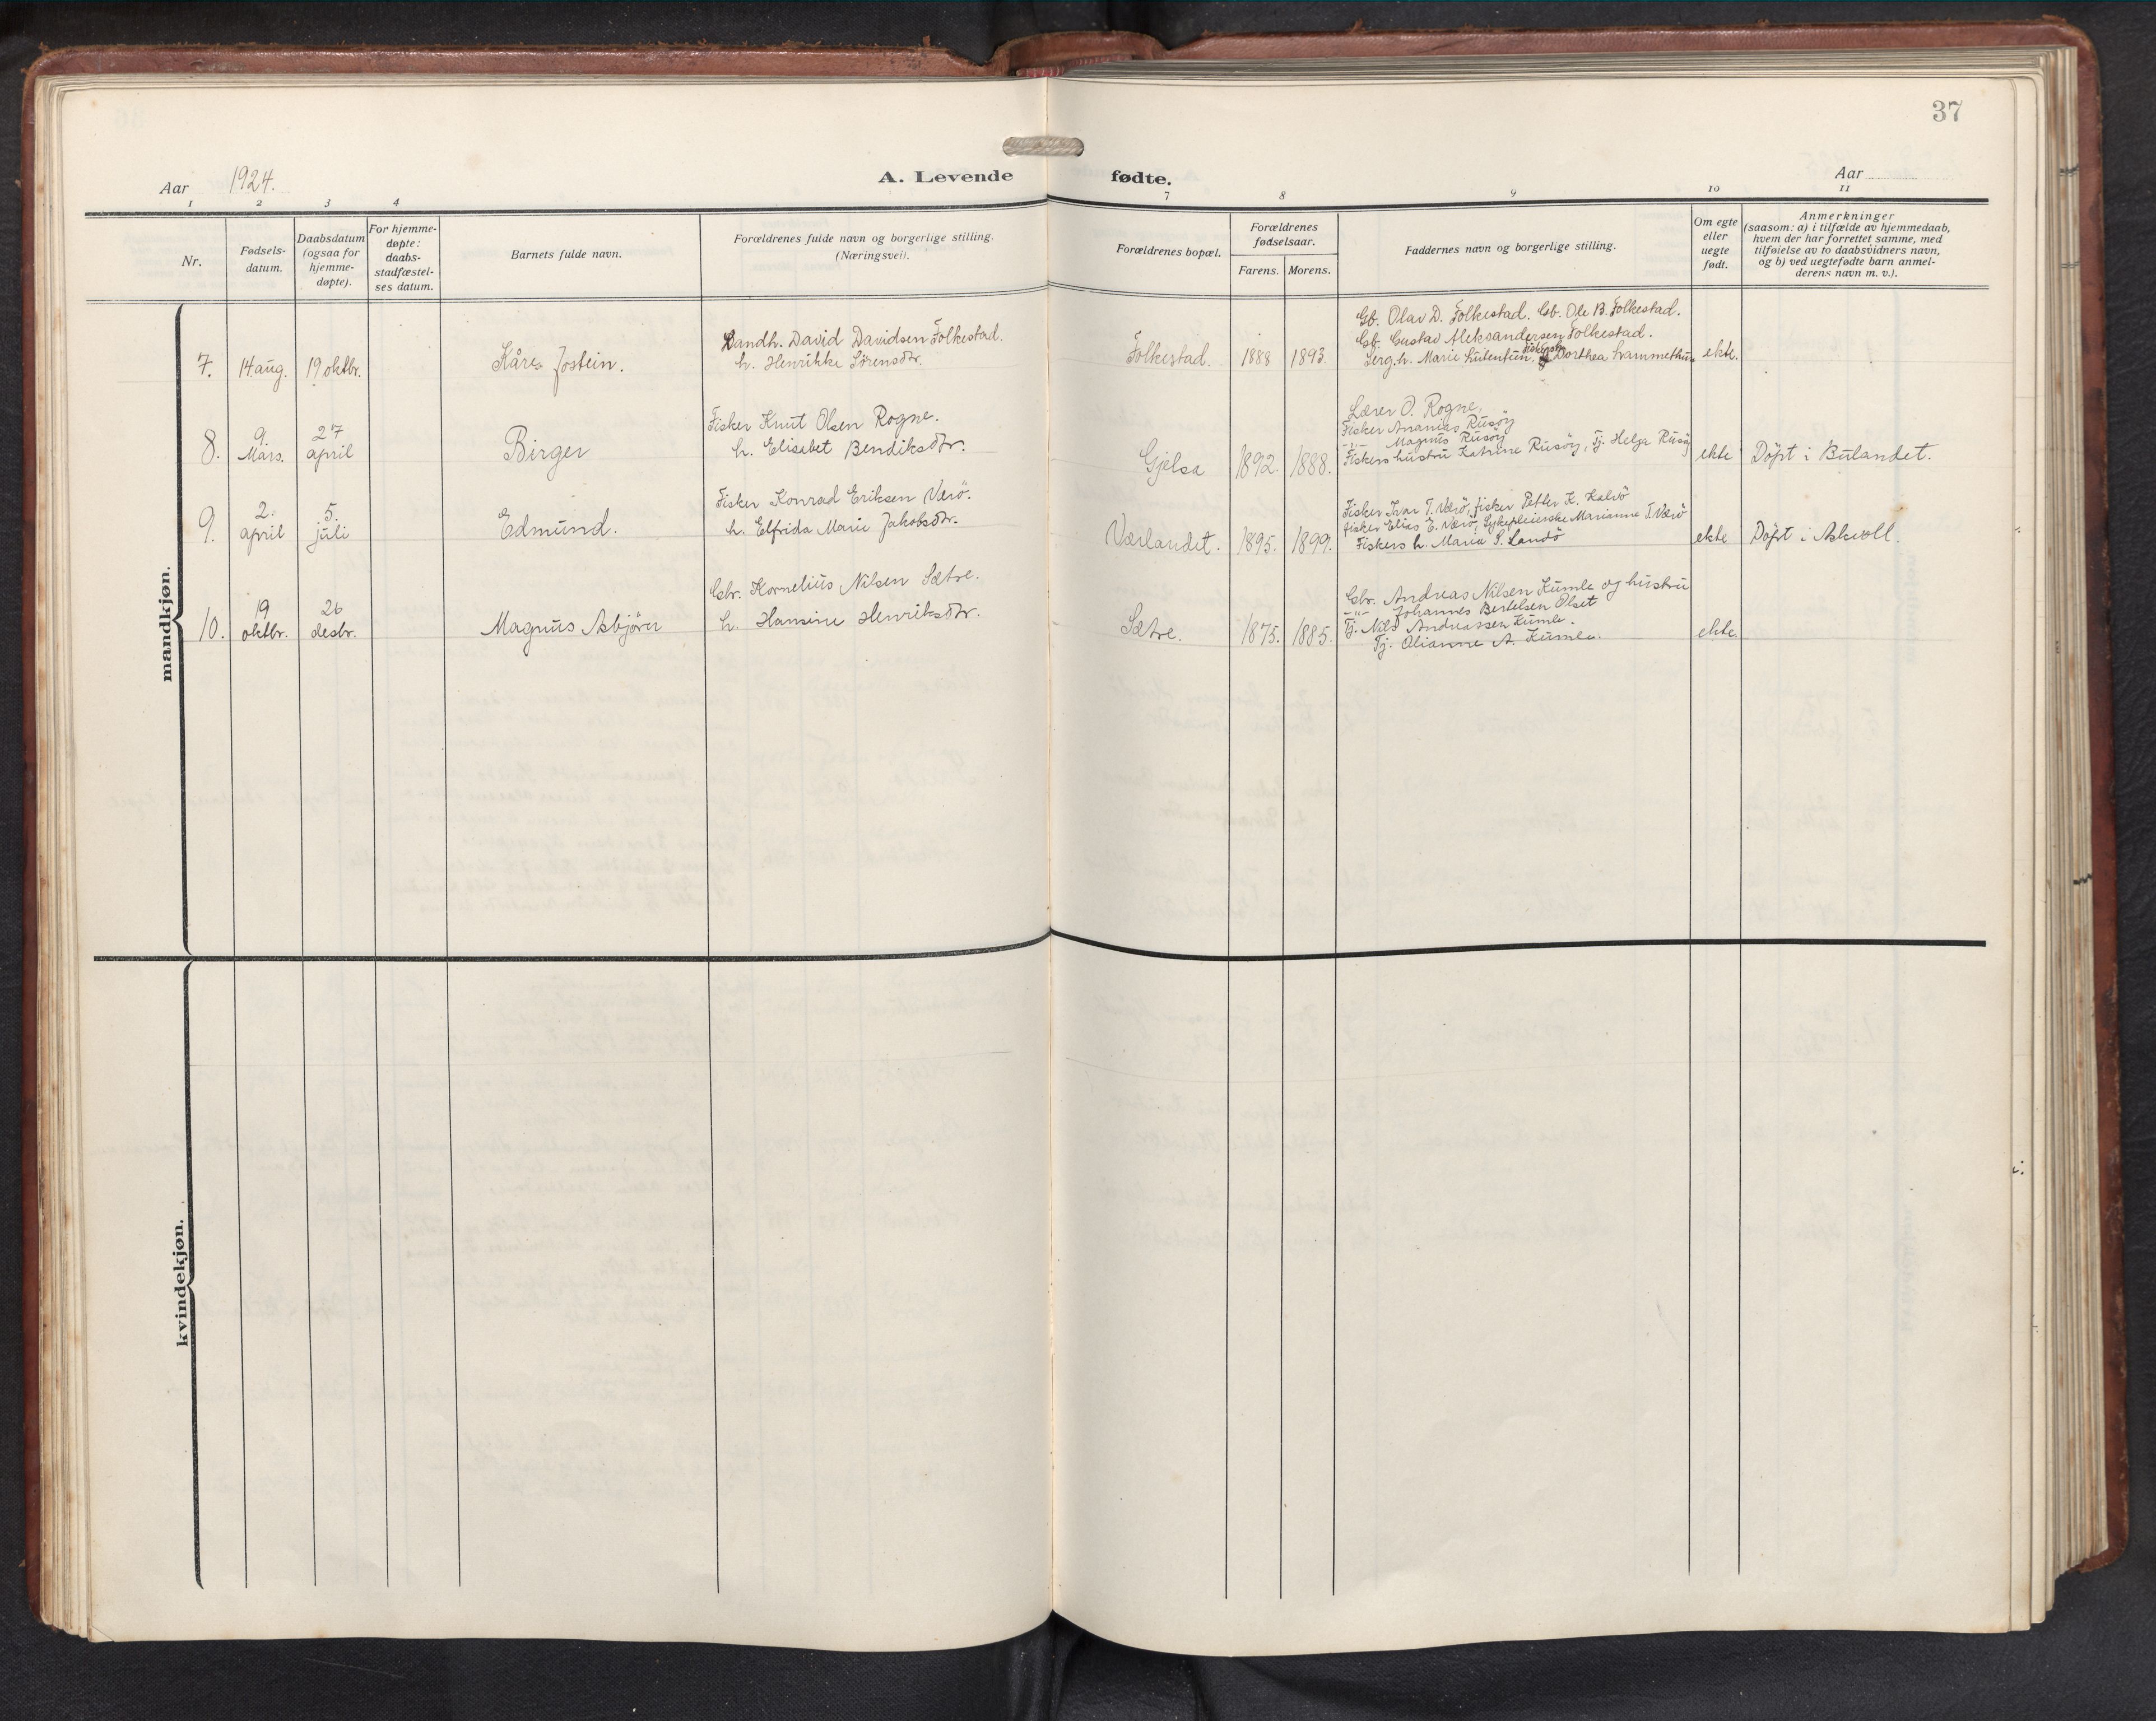 37
Aar 1924. A. Levende fødte. Aar
1 2 3 4 7 8 9 10 11
Nr.
Fødsels-
datum.
Daabsdatum
(ogsaa for
hjemme-
døpte).
For hjemme-
døpte:
daabs-
stadfæstel-
ses datum.
Barnets fulde navn.
Forældrenes fulde navn og borgerlige stilling.
(Næringsvei).
Forældrenes bopæl.
Forældrenes
fødselsaar.
Farens. Morens.
Faddernes navn og borgerlige stilling.
Om egte
eller
uegte
født.
Anmerkninger
(saasom: a) i tilfælde av hjemmedaab,
hvem der har forrettet samme, med
tilføielse av to daabsvidners navn,
og b) ved uegtefødte barn anmel-
derens navn m. v.).
mandkjøn.
7. 14 aug. 19 oktbr. Kåre Jostein.
Landh. David Davidsen Folkestad.
h. Henrikke Sörensdtr.
Folkestad. 1888 1893.
Gb. Olav D. Folkestad. Gb. Ole B. Folkestad.
Gb. Gustav Aleksandersen Folkestad.
Serg. h. Marie Dorthea
ekte.
8. 9. Mars. 27 april Birger
Fisker Knut Olsen Rogne.
h. Elisabet Bendiksdtr.
Gjelsa 1892. 1888.
Lærer O. Rogne,
Fisker Ananias Rusöy
-"- Magnus Rusöy
Fiskers hustru Katrine Rusöy, Tj. Helga Rusöy
ekte Döpt i Bulandet.
9. 2. april 5. juli Edmund.
Fisker Konrad Eriksen Værö.
h. Elfrida Marie Jakobsdtr.
Værlandet. 1895. 1899.
Fisker Ivar T. Værö, fisker Petter K. Kalvö
fisker Elias E. Værö, Sykepleierske Marianne T. Værö
Fiskers h. Maria S. Landö
ekte Döpt i Askvoll.
10. 19 oktbr. 26 desbr. Magnus Asbjörn
Gbr. Kornelius Nilsen Sætre.
h. Hansine Henriksdtr.
Sætre. 1875. 1885.
Gbr. Andreas Nilsen Kumle og hustru
-"- Johannes Bertelsen Olset
Tj. Nils Andreassen Kumle.
Tj. Olianne A. Kumle.
ekte.
kvindekjøn.